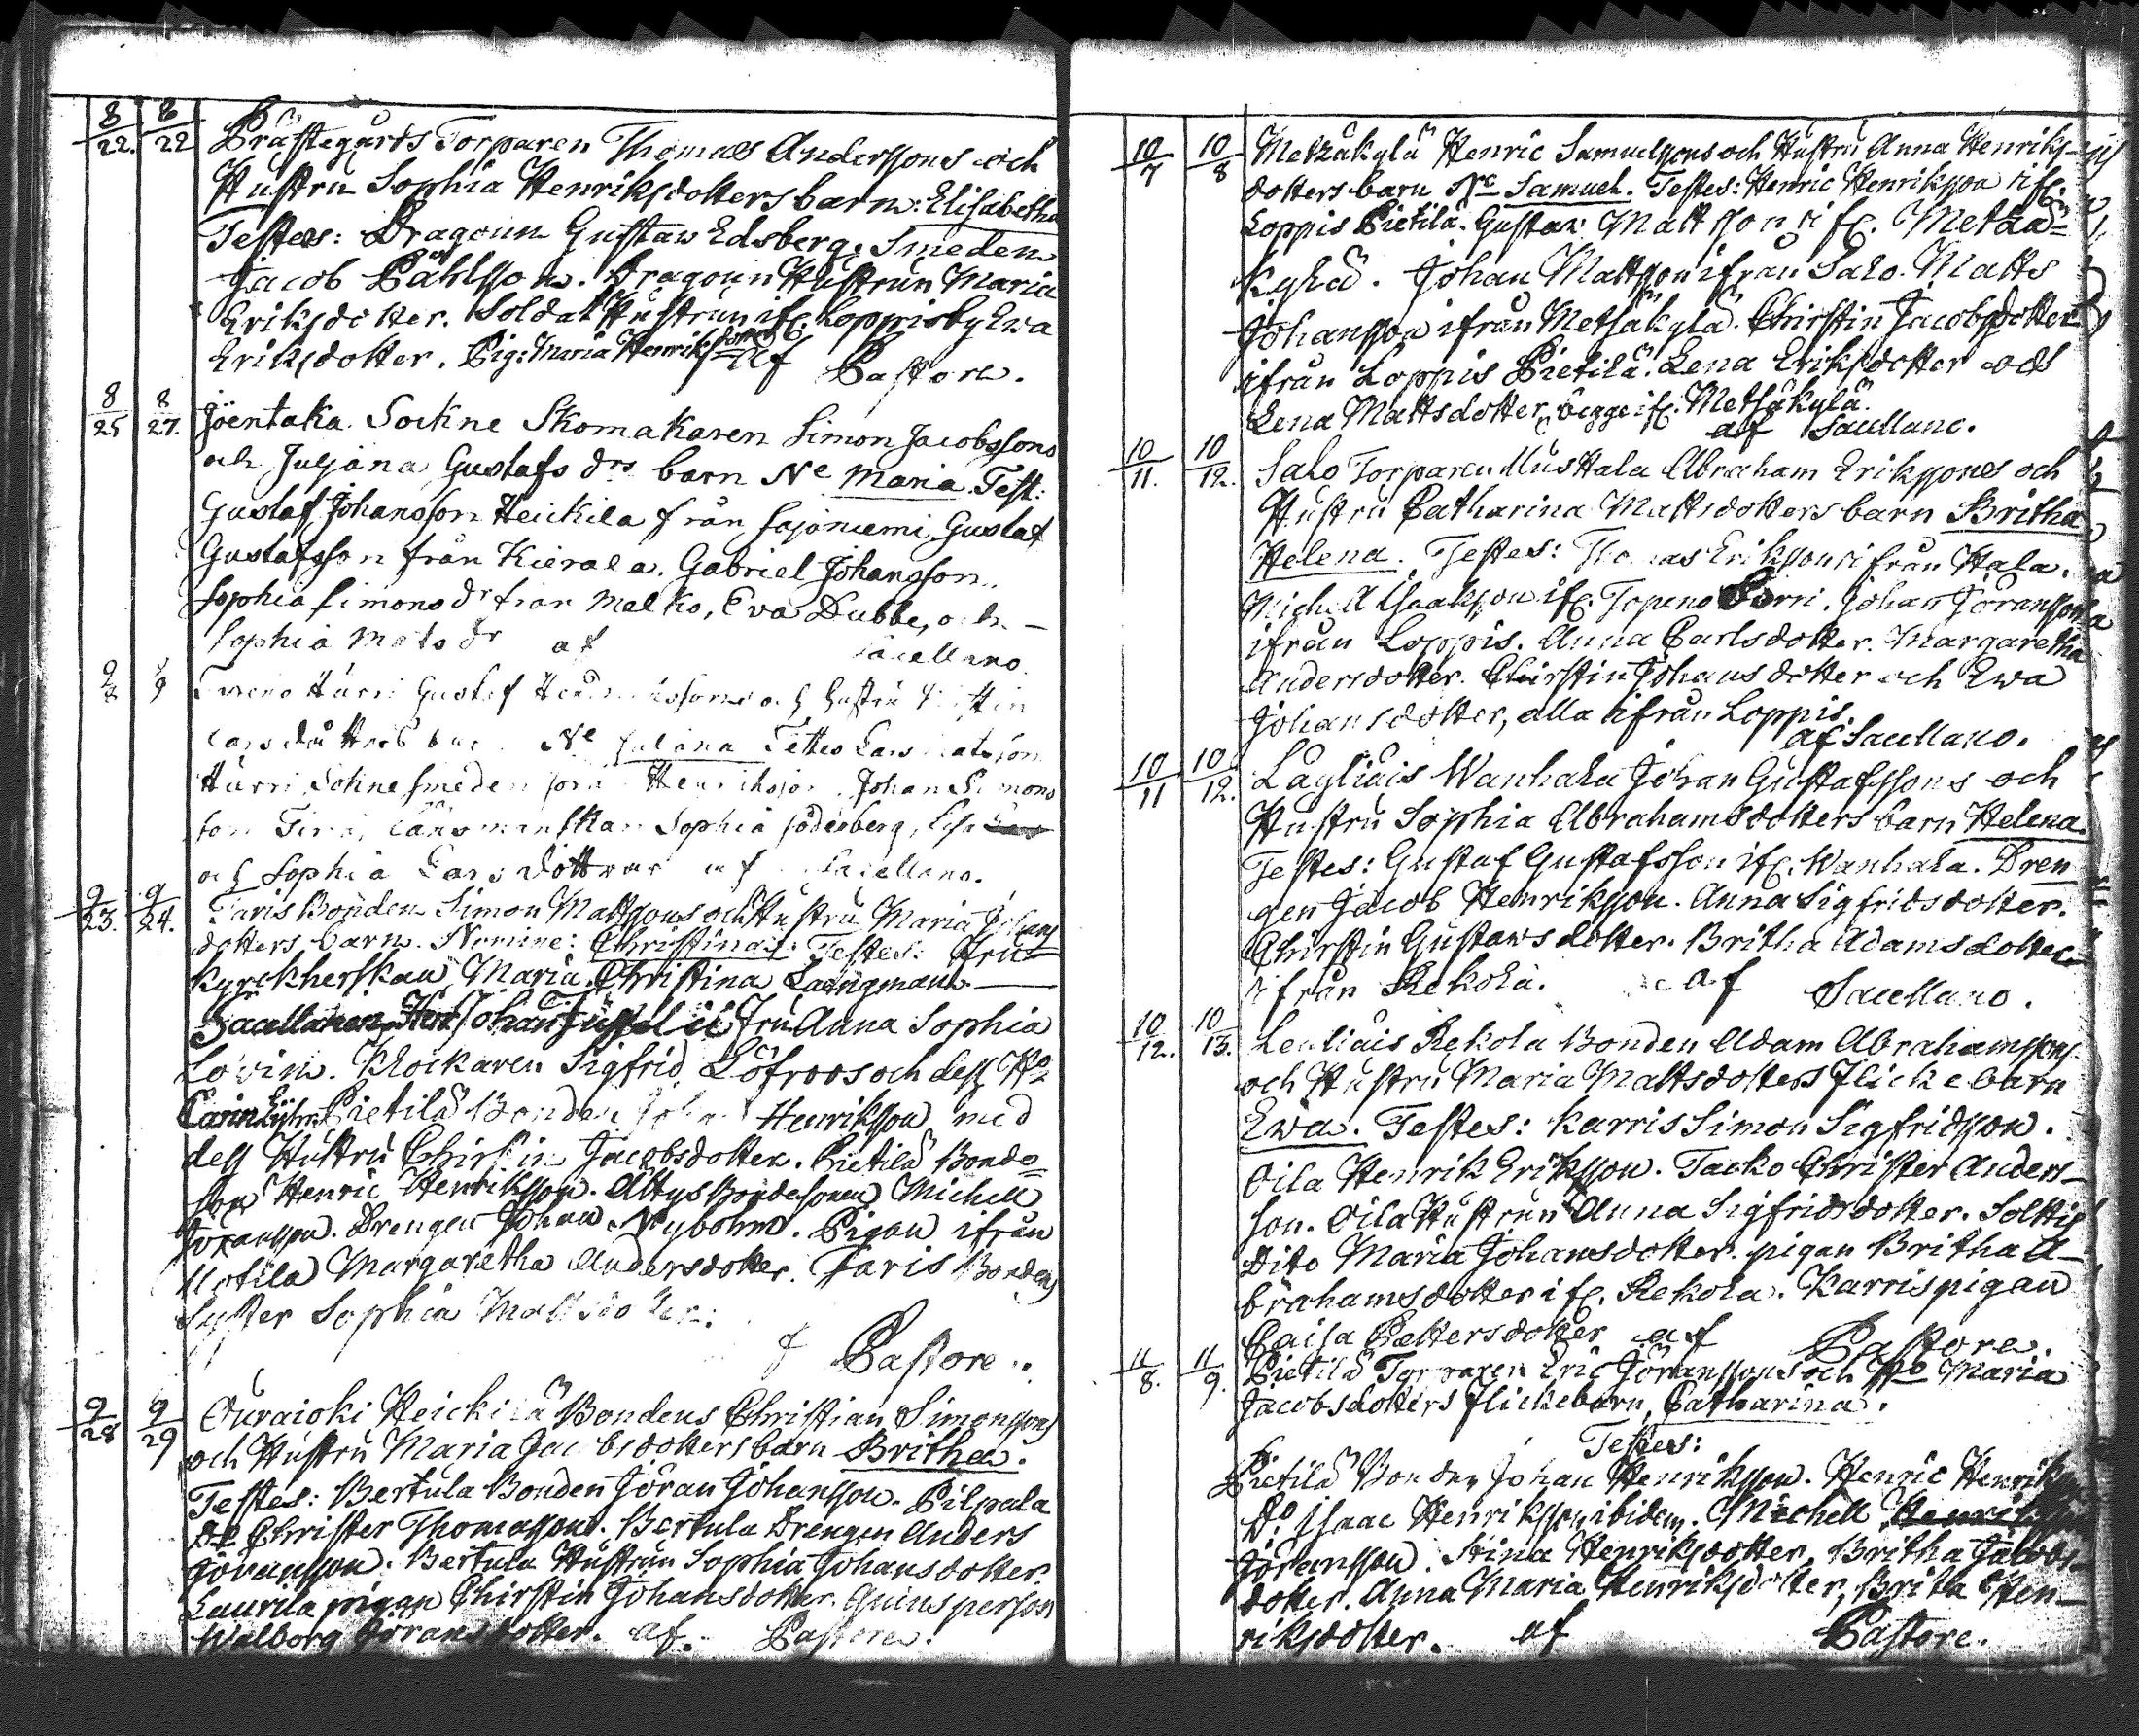 8/22. 8/22 Prästegårds Torparen Thomas Anderssons och
Hustru Sophia Henriksdotters barn: Elisabetha
Testes: Dragoun Gustaw Edsberg. Smeden
Jacob Påhlsson. Dragoun Hustrun Maria
Eriksdotter. Soldat Hustrun ifr. Loppisby Ewa
Eriksdotter. Pig: Maria Henriksdotter af Pastore.
8/25 8/27. Joentaka Sockne Skomakaren Simon Jacobssons
och Juljana Gustafs drs barn Ne Maria. Test:
Gustaf Johansson Heickila från Sajaniemi Gustaf
Gustafsson från Kierala. Gabriel Johansson,
Sophia Simons dr från Malko, Eva Dubbe, och
Sophia Mats dr af Sacellano.
9/8 9/9 Hurri Gustaf och Hustru
Lars dotters Ne Juliana Testes Lars Matsson
Hurri, Sockne Smeden Henriksson, Johan Simons
son Länsmanskan Sophia Söderberg, Lisa
och Sophia Lars döttrar af Sacellano.
9/23. 9/24. Taris Bonden Simon Mattssons och Hustru Maria Johans
dotters barn. Nomine: Christina. Testes: Fru
Kyrckherskan Maria Christina Laengman.
Sacellanen Herr Johan Fru Anna Sophia
Lovin. Klockaren Sigfrid Löfroos och dess Ho
Carin Pietilä Bonden Johan Henriksson med
dess Hustru Chirstin Jacobsdotter. Pietilä Bonde
son Henric Henriksson. Bondesonen Michell
Jöransson. Drengen Johan Nybohm. Pigan ifrån
Uotila Margaretha Andersdotter. Taris Bondens
Syster Sophia Mattsdotter.
f Pastore.
9/28 9/29 Ouraioki Heickilä Bondens Christian Simonssons
och Hustru Maria Jacobsdotters barn Britha.
Testes: Bertula Bonden Jöran Johansson. Pilpala
Do Christer Thomasson. Bertula Drengen Anders
Jöransson. Bertula Hustrun Sophia Johansdotter.
Laurila pigan Chirstin Johansdotter. Quinsperson
Walborg Jöransdotter. af. Pastore.
10/7 10/8 Metzäkylä Henric Samuelssons och Hustru Anna Henriks-
dotters barn Ne Samuel. Testes: Henric Henriksson ifr.
Loppis Pietilä. Gustav Mattsson ifr. Metzä-
kylä. Johan Mattsson ifrån Salo. Matts
Johansson ifrån Metsäkylä. Chirstin Jacobsdotter
ifrån Loppis Pietilä. Lena Eriksdotter och
Lena Mattsdotter, begge ifr. Metsäkylä.
af Sacellano.
10/11. 10/12. Salo Torparen Abraham Erikssons och
Hustru Catharina Mattsdotters barn Britha
Helena. Testes: Thomas Eriksson ifrån Hala.
Michell Isaaksson ifr. Topeno Johan Jöransson
ifrån Loppis. Anna Carlsdotter. Margaretha
Andersdotter. Chirstin Johansdotter och Ewa
Johansdotter, alla ifrån Loppis.
af Sacellano.
10/11 10/12. Läyliäis Wanhala Johan Gustafssons och
Hustru Sophia Abrahamsdotters barn Helena.
Testes: Gustaf Gustafsson ifr. Wanhala. Dren
gen Jacob Henriksson. Anna Sigfridsdotter.
Chirstin Gustawsdotter. Britha Adamsdotter
ifrån Rekola. af Sacellano.
10/12. 10/13. Rekola Bonden Adam Abrahamssons
och Hustru Maria Mattsdotters flickebarn
Ewa. Testes: Karris Simon Sigfridsson.
Oila Henrik Eriksson. Tacko Christer Anders-
son. Oila Hustrun Anna Sigfridsdotter.
Dito Maria Johansdotter. pigan Britha A-
brahamsdotter ifr. Rekola. Karris pigan
Caisa Pettersdotter af Pastore.
11/8. 11/9. Pietilä Torparen Eric Jöranssons och Ho Maria
Jacobsdotters flickebarn, Catharina.
Testes:
Pietilä Bonden Johan Henriksson. Henric Henriksson
Do Isaac Henriksson ibidem. Michell
Jöransson. Stina Henriksdotter, Britha Jacobs-
dotter. Anna Maria Henriksdotter, Brita Hen-
riksdotter. af Pastore.